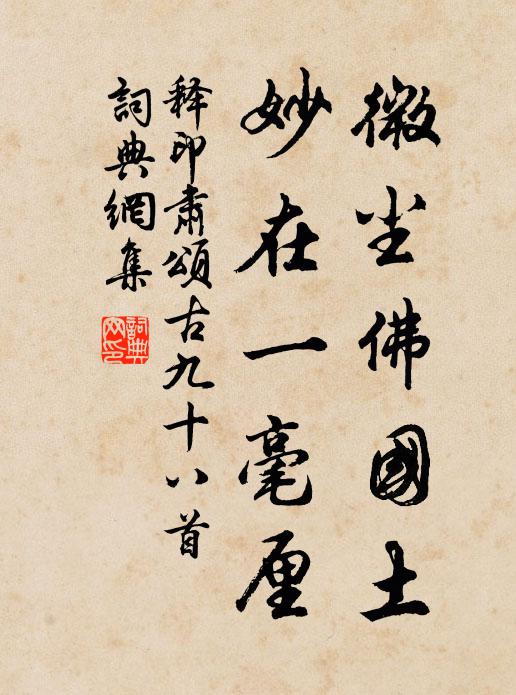 微尘佛國土
妙在一毫厘
释印肃頌古九十八首
詞典網集
詞典
网印